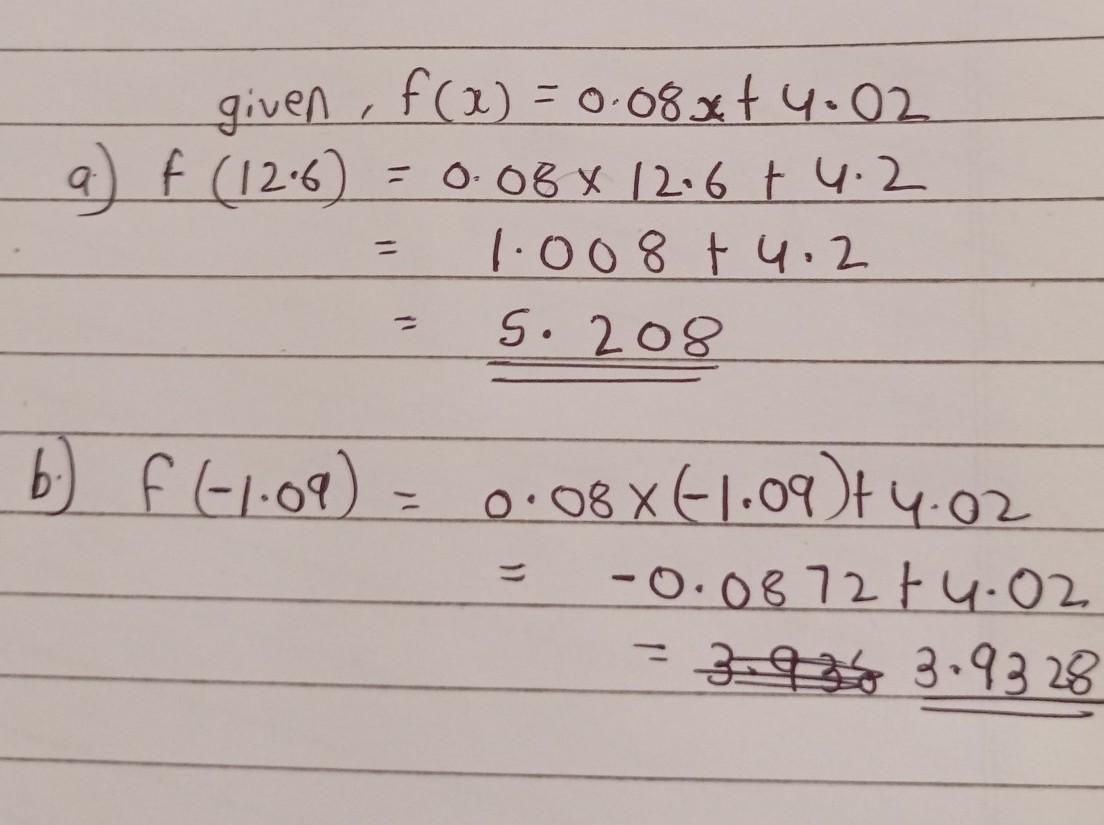 given, f(x) = 0.08x + 4.02
a) f(12.6) = 0.08 × 12.6 + 4.2
= 1.008 + 4.2
= 5.208
b) f(-1.09) = 0.08 × (-1.09) + 4.02
= -0.0872 + 4.02
= 3.936 3.9328